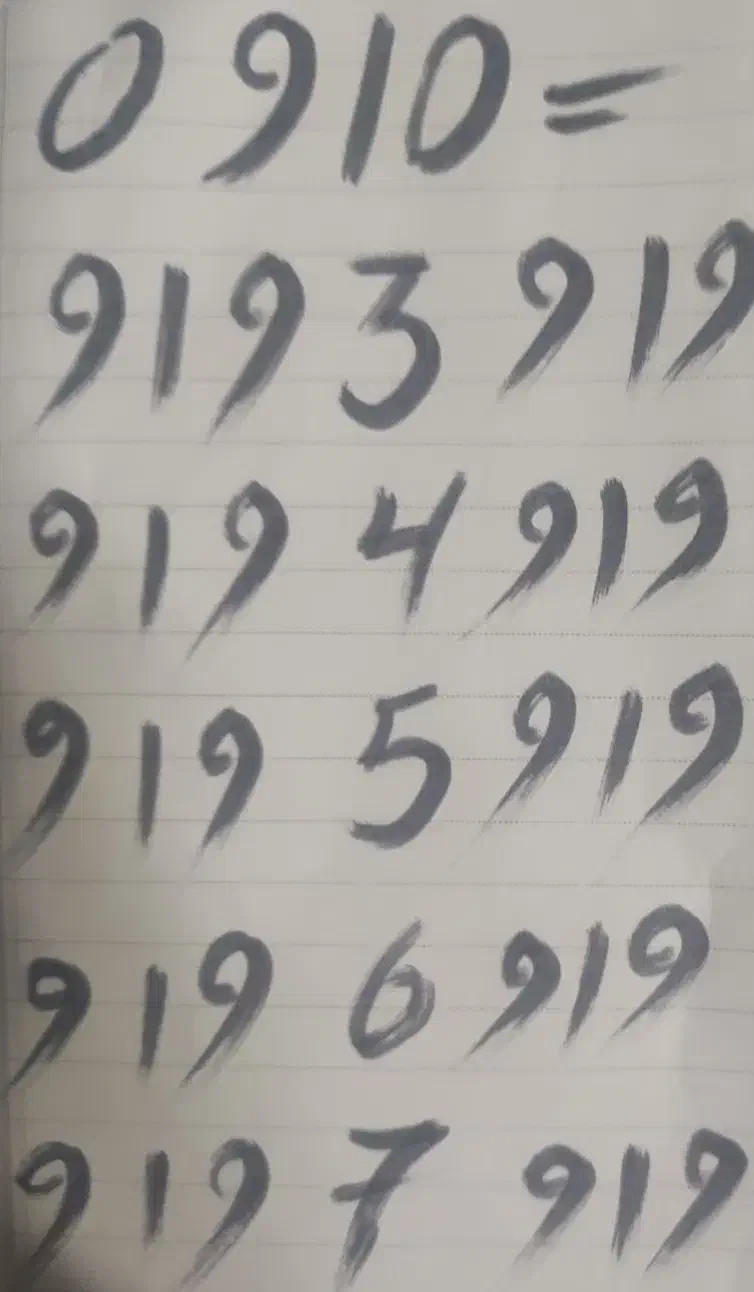 0910=
919 3 919
919 4 919
919 5 919
919 6 919
919 7 919